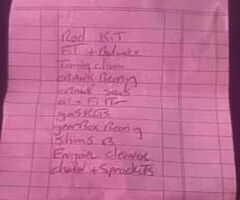 Rod KiT
E1 + Balance
Timing chain
crank Bearing
crank seals
oil + FilTr
gasKeTs
gearBox Bearing
Shims x3
Engine cleaner
chain + SprockeTs